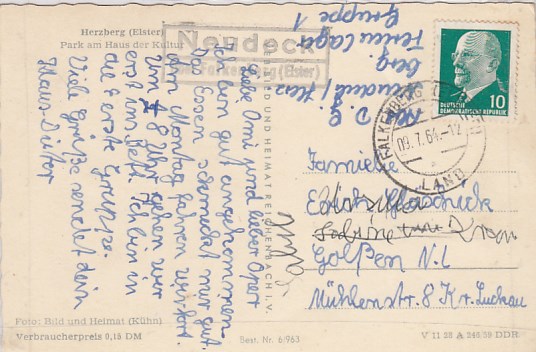 Herzberg (Elster)
Park am Haus der Kultur
Neudeck
über Falkenberg (Elster)
Ferienlager
Gruppe 1
Liebe Omi und lieber Opa!
Ich bin gut angekommen.
Das Essen schmeckt nur gut.
Am Montag fahren wir fort.
Um 8 Uhr gehen wir
erst ins Bett. Ich bin in
die erste Gruppe.
Viele Grüße sendet dein
Klaus-Dieter
BILD UND HEIMAT REICHENBACH I. V.
DEUTSCHE
DEMOKRATISCHE REPUBLIK
10
FALKENBERG
09.7.64.-12
LAND
Familie
Golßen N.L
Mühlenstr. 8 Kr. Luckau
Foto: Bild und Heimat (Kühn)
Verbraucherpreis 0,15 DM
Best. Nr. 6/963
V 11 28 A 240/59 DDR